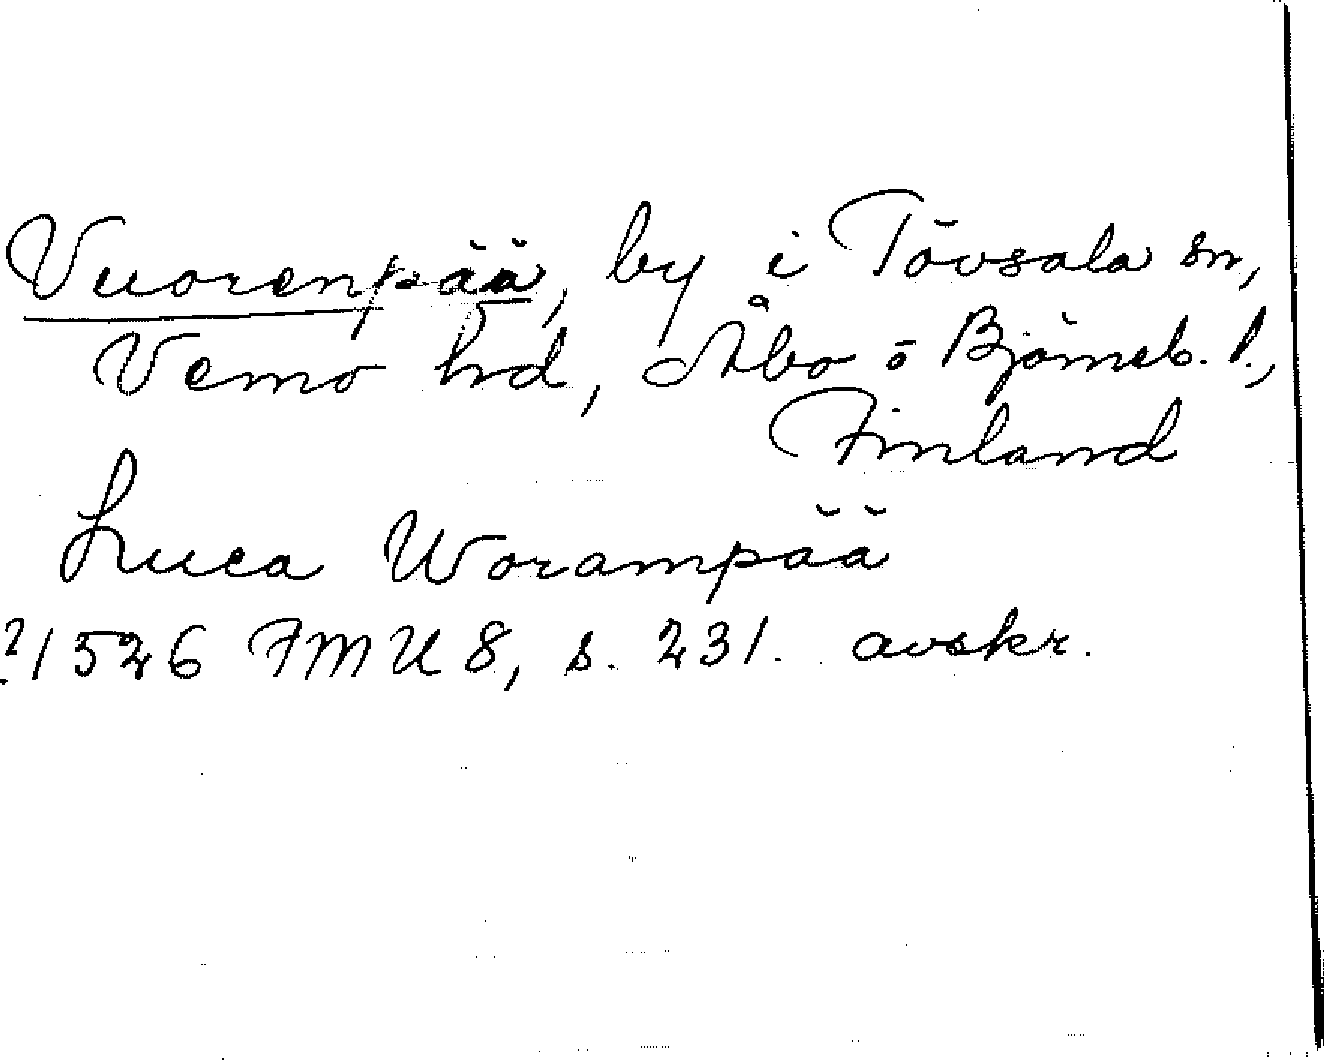 Vuorenpää, by i Tövsala sn,
Vemo hrd, Åbo o Björneb. l.,
Finland
Luca Worampää
?1526 FMU 8, s. 231. avskr.